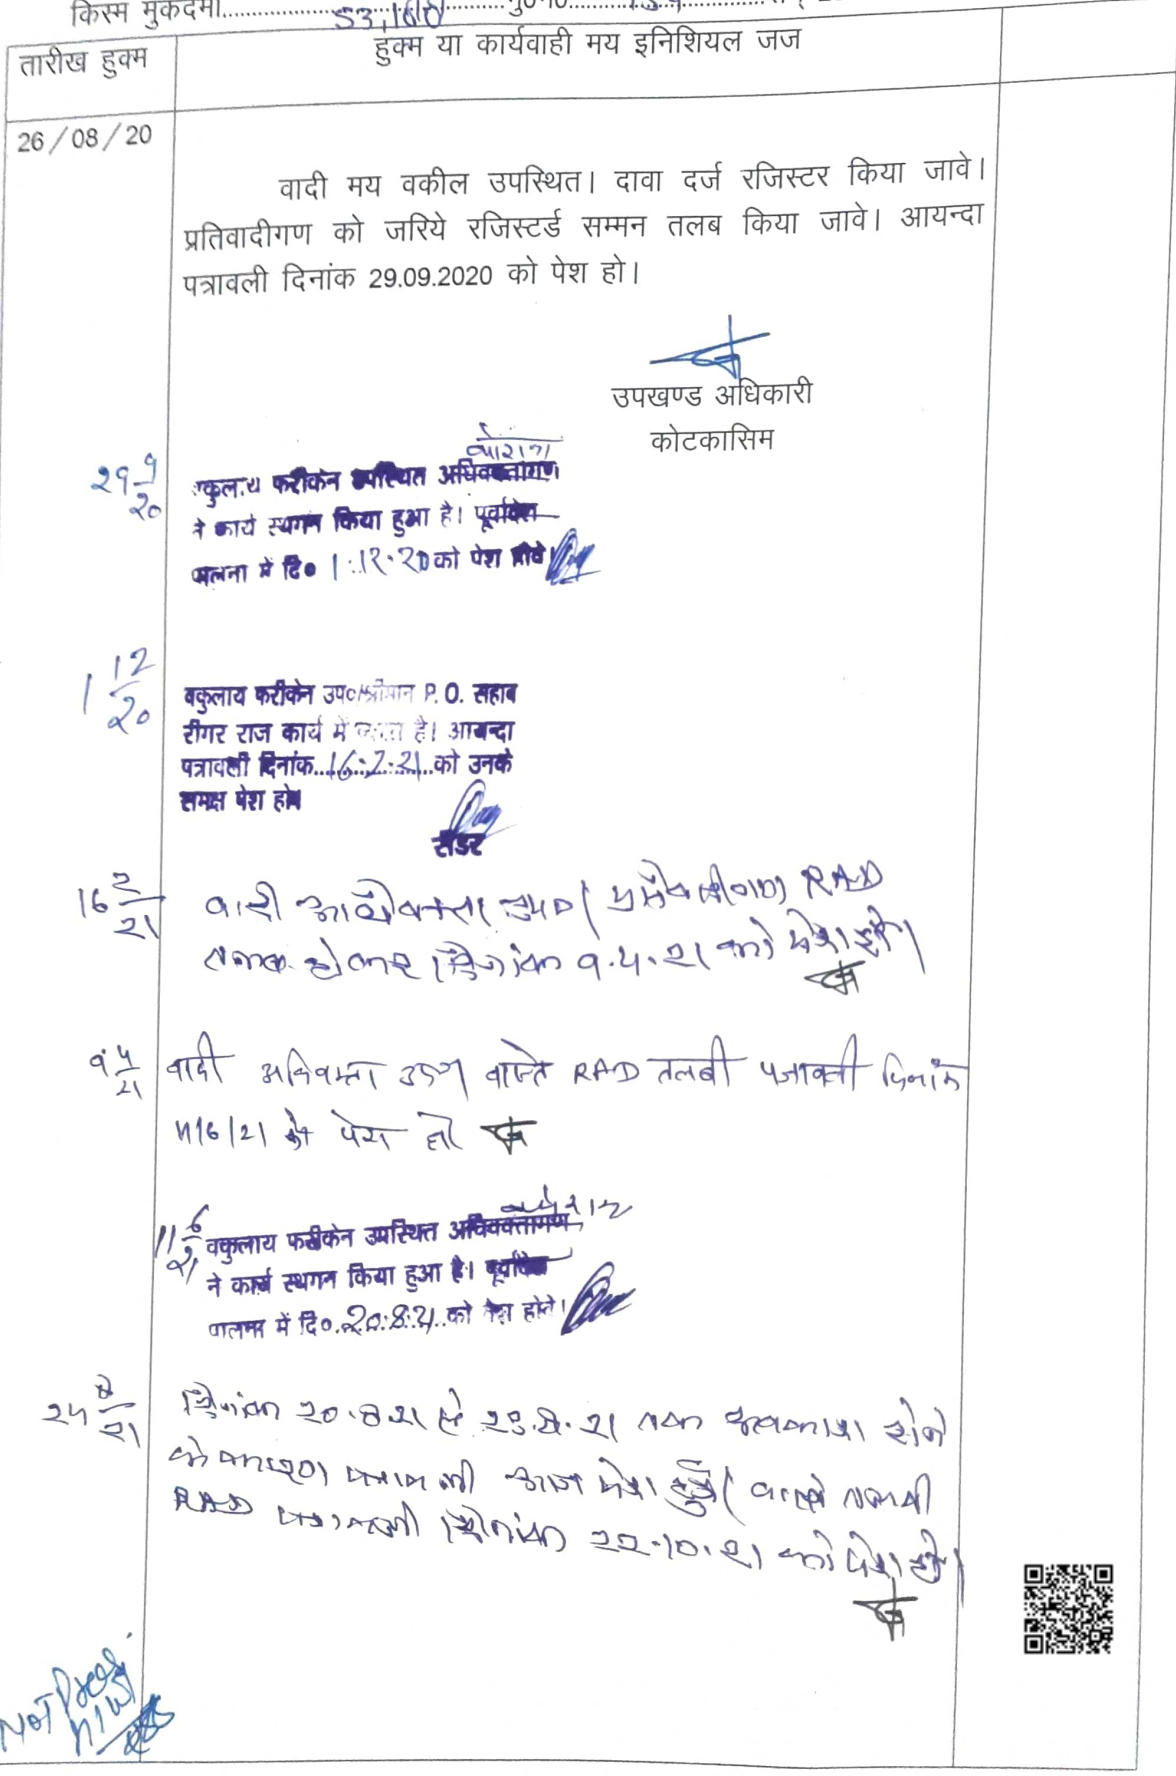 किस्म मुकदमा
तारीख हुक्म
हुक्म या कार्यवाही मय इनिशियल जज
26/08/20
वादी मय वकील उपस्थित। दावा दर्ज रजिस्टर किया जावे।
प्रतिवादीगण को जरिये रजिस्टर्ड सम्मन तलब किया जावे। आयन्दा
पत्रावली दिनांक 29.09.2020 को पेश हो।
उपखण्ड अधिकारी
कोटकासिम
29 9/20
फरीकेन उपस्थित अधिवक्तागण
ने कार्य स्थगन किया हुआ है। पूर्वादेश
पालना में दि० 1.12.20 को पेश होवे।
1 12/20
वकुलाय फरीकेन उप० श्रीमान P.O. सहाब
दीगर राज कार्य में है। आयन्दा
पत्रावली दिनांक 16.2.21 को उनके
समक्ष पेश हो।
रीडर
16 2/21
वादी अधिवक्ता उप० RAD
तलब होकर दिनांक 9.4.21 को पेश हो।
9 4/21
वादी अधिवक्ता उप० वास्ते RAD तलबी पत्रावली दिनांक
11/6/21 को पेश हो
11 6/21
वकुलाय फरीकेन उपस्थित अधिवक्तागण
ने कार्य स्थगन किया हुआ है। पूर्वादेश
पालना में दि०.20.8.21.को पेश होवे।
24 8/21
दिनांक 20.8.21 से 23.8.21 तक अवकाश होने
के कारण पत्रावली आज पेश हुई। वास्ते तलबी
RAD पत्रावली दिनांक 22.10.21 को पेश हो।
NOT Press